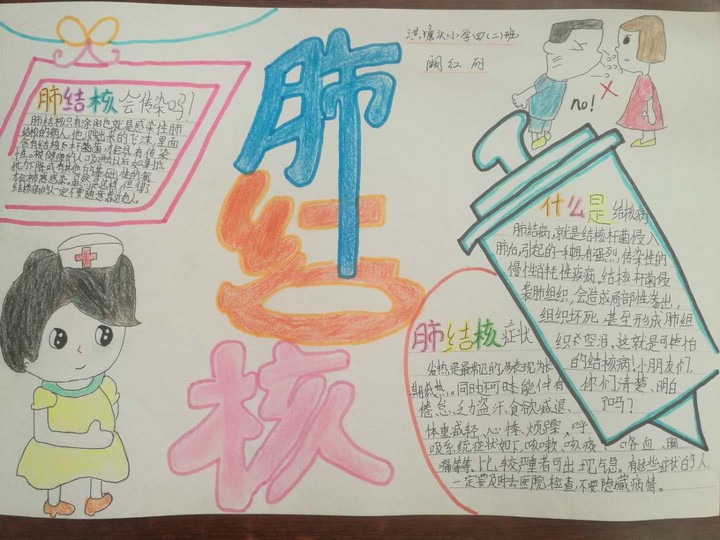 洪塘头小学四(二)班
阙红雨
no!
肺结核
肺结核会传染吗!
肺结核只有涂阳也就是感染性肺
结核的病人,他咳出来的飞沫,里面
含有结核分杆菌,才具有传染
性。被健康的人吸进去以后,如果抵
结核病的人一定不要随意靠近他人。
什么是结核病
肺结病,就是结核杆菌侵入
肺后,引起的一种具有强烈,传染性的
慢性消耗性疾病。结核杆菌侵
袭肺组织,会造成局部性渗出,
组织坏死,甚至形成肺组
织空洞。这就是可怕
的结核病!小朋友们
你们清楚、明白
了吗?
肺结核症状
发热是最常见的,多表现为长
期低热。同时还可能伴有
倦怠、乏力盗汗、食欲减退、
体重减轻、心悸、烦躁。呼
吸系统症状如下,咳嗽、咳痰、咯血、胸
痛等,比较严重者可出现气急。有这些症状的人
一定要及时去医院检查,不要隐藏病情。